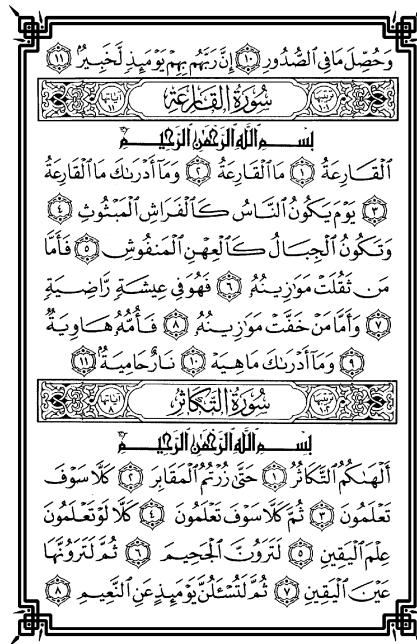 وَحُصِّلَ مَا فِي ٱلصُّدُورِ ١٠ إِنَّ رَبَّهُم بِهِمْ يَوْمَئِذٍ لَّخَبِيرٌۢ ١١
سُورَةُ ٱلْقَارِعَةِ
بِسْمِ ٱللَّهِ ٱلرَّحْمَٰنِ ٱلرَّحِيمِ
ٱلْقَارِعَةُ ١ مَا ٱلْقَارِعَةُ ٢ وَمَآ أَدْرَىٰكَ مَا ٱلْقَارِعَةُ
٣ يَوْمَ يَكُونُ ٱلنَّاسُ كَٱلْفَرَاشِ ٱلْمَبْثُوثِ ٤
وَتَكُونُ ٱلْجِبَالُ كَٱلْعِهْنِ ٱلْمَنفُوشِ ٥ فَأَمَّا
مَن ثَقُلَتْ مَوَٰزِينُهُۥ ٦ فَهُوَ فِي عِيشَةٍ رَّاضِيَةٍ
٧ وَأَمَّا مَنْ خَفَّتْ مَوَٰزِينُهُۥ ٨ فَأُمُّهُۥ هَاوِيَةٌ
٩ وَمَآ أَدْرَىٰكَ مَا هِيَهْ ١٠ نَارٌ حَامِيَةٌۢ ١١
سُورَةُ ٱلتَّكَاثُرِ
بِسْمِ ٱللَّهِ ٱلرَّحْمَٰنِ ٱلرَّحِيمِ
أَلْهَىٰكُمُ ٱلتَّكَاثُرُ ١ حَتَّىٰ زُرْتُمُ ٱلْمَقَابِرَ ٢ كَلَّا سَوْفَ
تَعْلَمُونَ ٣ ثُمَّ كَلَّا سَوْفَ تَعْلَمُونَ ٤ كَلَّا لَوْ تَعْلَمُونَ
عِلْمَ ٱلْيَقِينِ ٥ لَتَرَوُنَّ ٱلْجَحِيمَ ٦ ثُمَّ لَتَرَوُنَّهَا
عَيْنَ ٱلْيَقِينِ ٧ ثُمَّ لَتُسْـَٔلُنَّ يَوْمَئِذٍ عَنِ ٱلنَّعِيمِ ٨